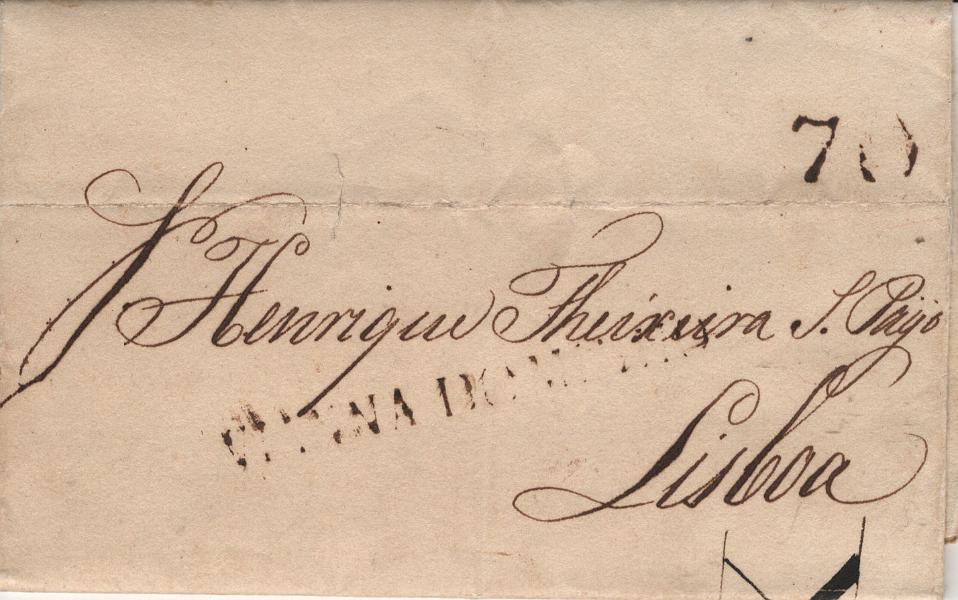 70
Henrique Theixeira S. Payo
Lisboa